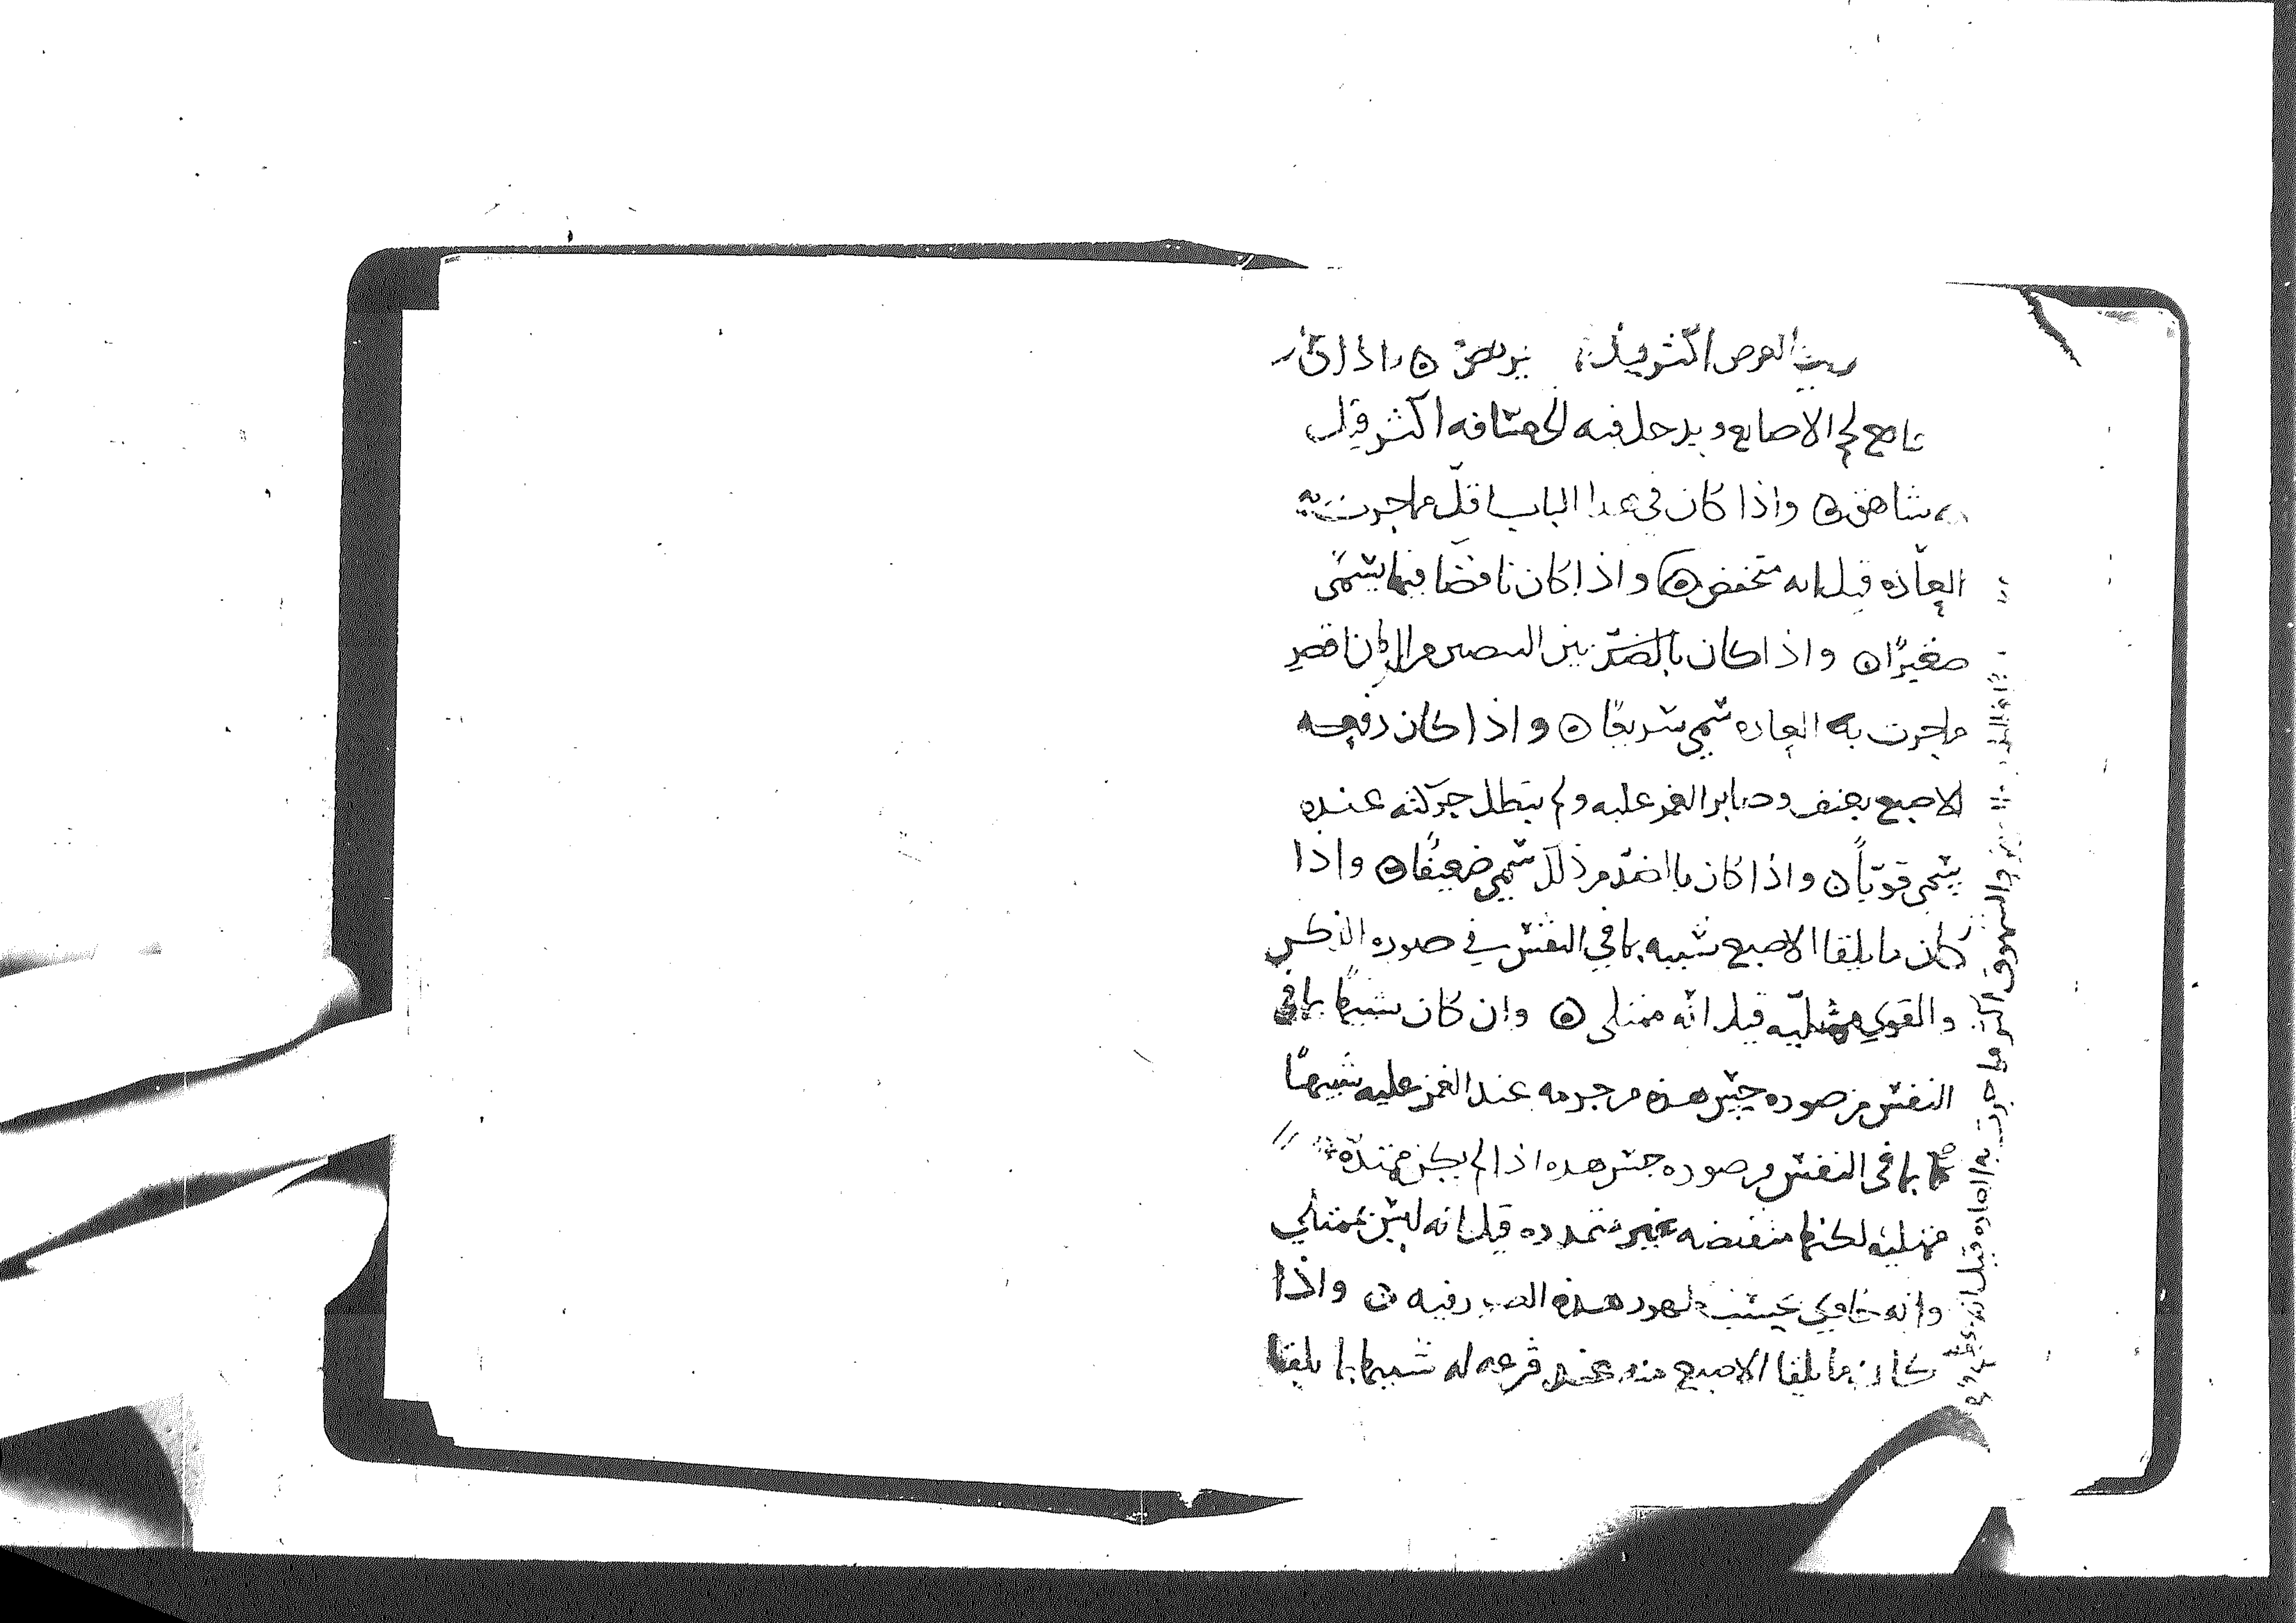 العرض اكثر قيل عريض ۞ واذا كان
الاصابع ويدخل فيه اكثر قيل
شاهق ۞ واذا كان في هذا الباب اقل مما جرت به
العاده قيل انه منخفض ۞ واذا كان ناقصا فيها يسمى
صغيرًا ۞ واذا كان بالضد بين
ما جرت به العاده سمي سريعًا ۞ واذا كان دفعه
للاصبع بعنف وصابر الغمز عليه ولم يبطل حركته عنده
يسمى قويًا ۞ واذا كان بالضد من ذلك سمي ضعيفًا ۞ واذا
كان ما يلقا الاصبع شبيه بما في النفس في صوره الذكر
والقوي ممتليه قيل انه ممتلى ۞ وان كان شبيها بما في
النفس من صوره جس هذه من جرمه عند الغمز عليه شبيهًا
بما في النفس من صوره جس هذه اذا لم يكن ممتده
ممتليه لكنها منقبضه غير متمدده قيل انه ليس بممتلي
وانه خاوي بحسب ظهور هذه الصور فيه ۞ واذا
كان ما يلقا الاصبع منه عند قرعه له شبيها بما يلقا
والشهوق اكثر مما جرت به العاده قيل انه عظيم